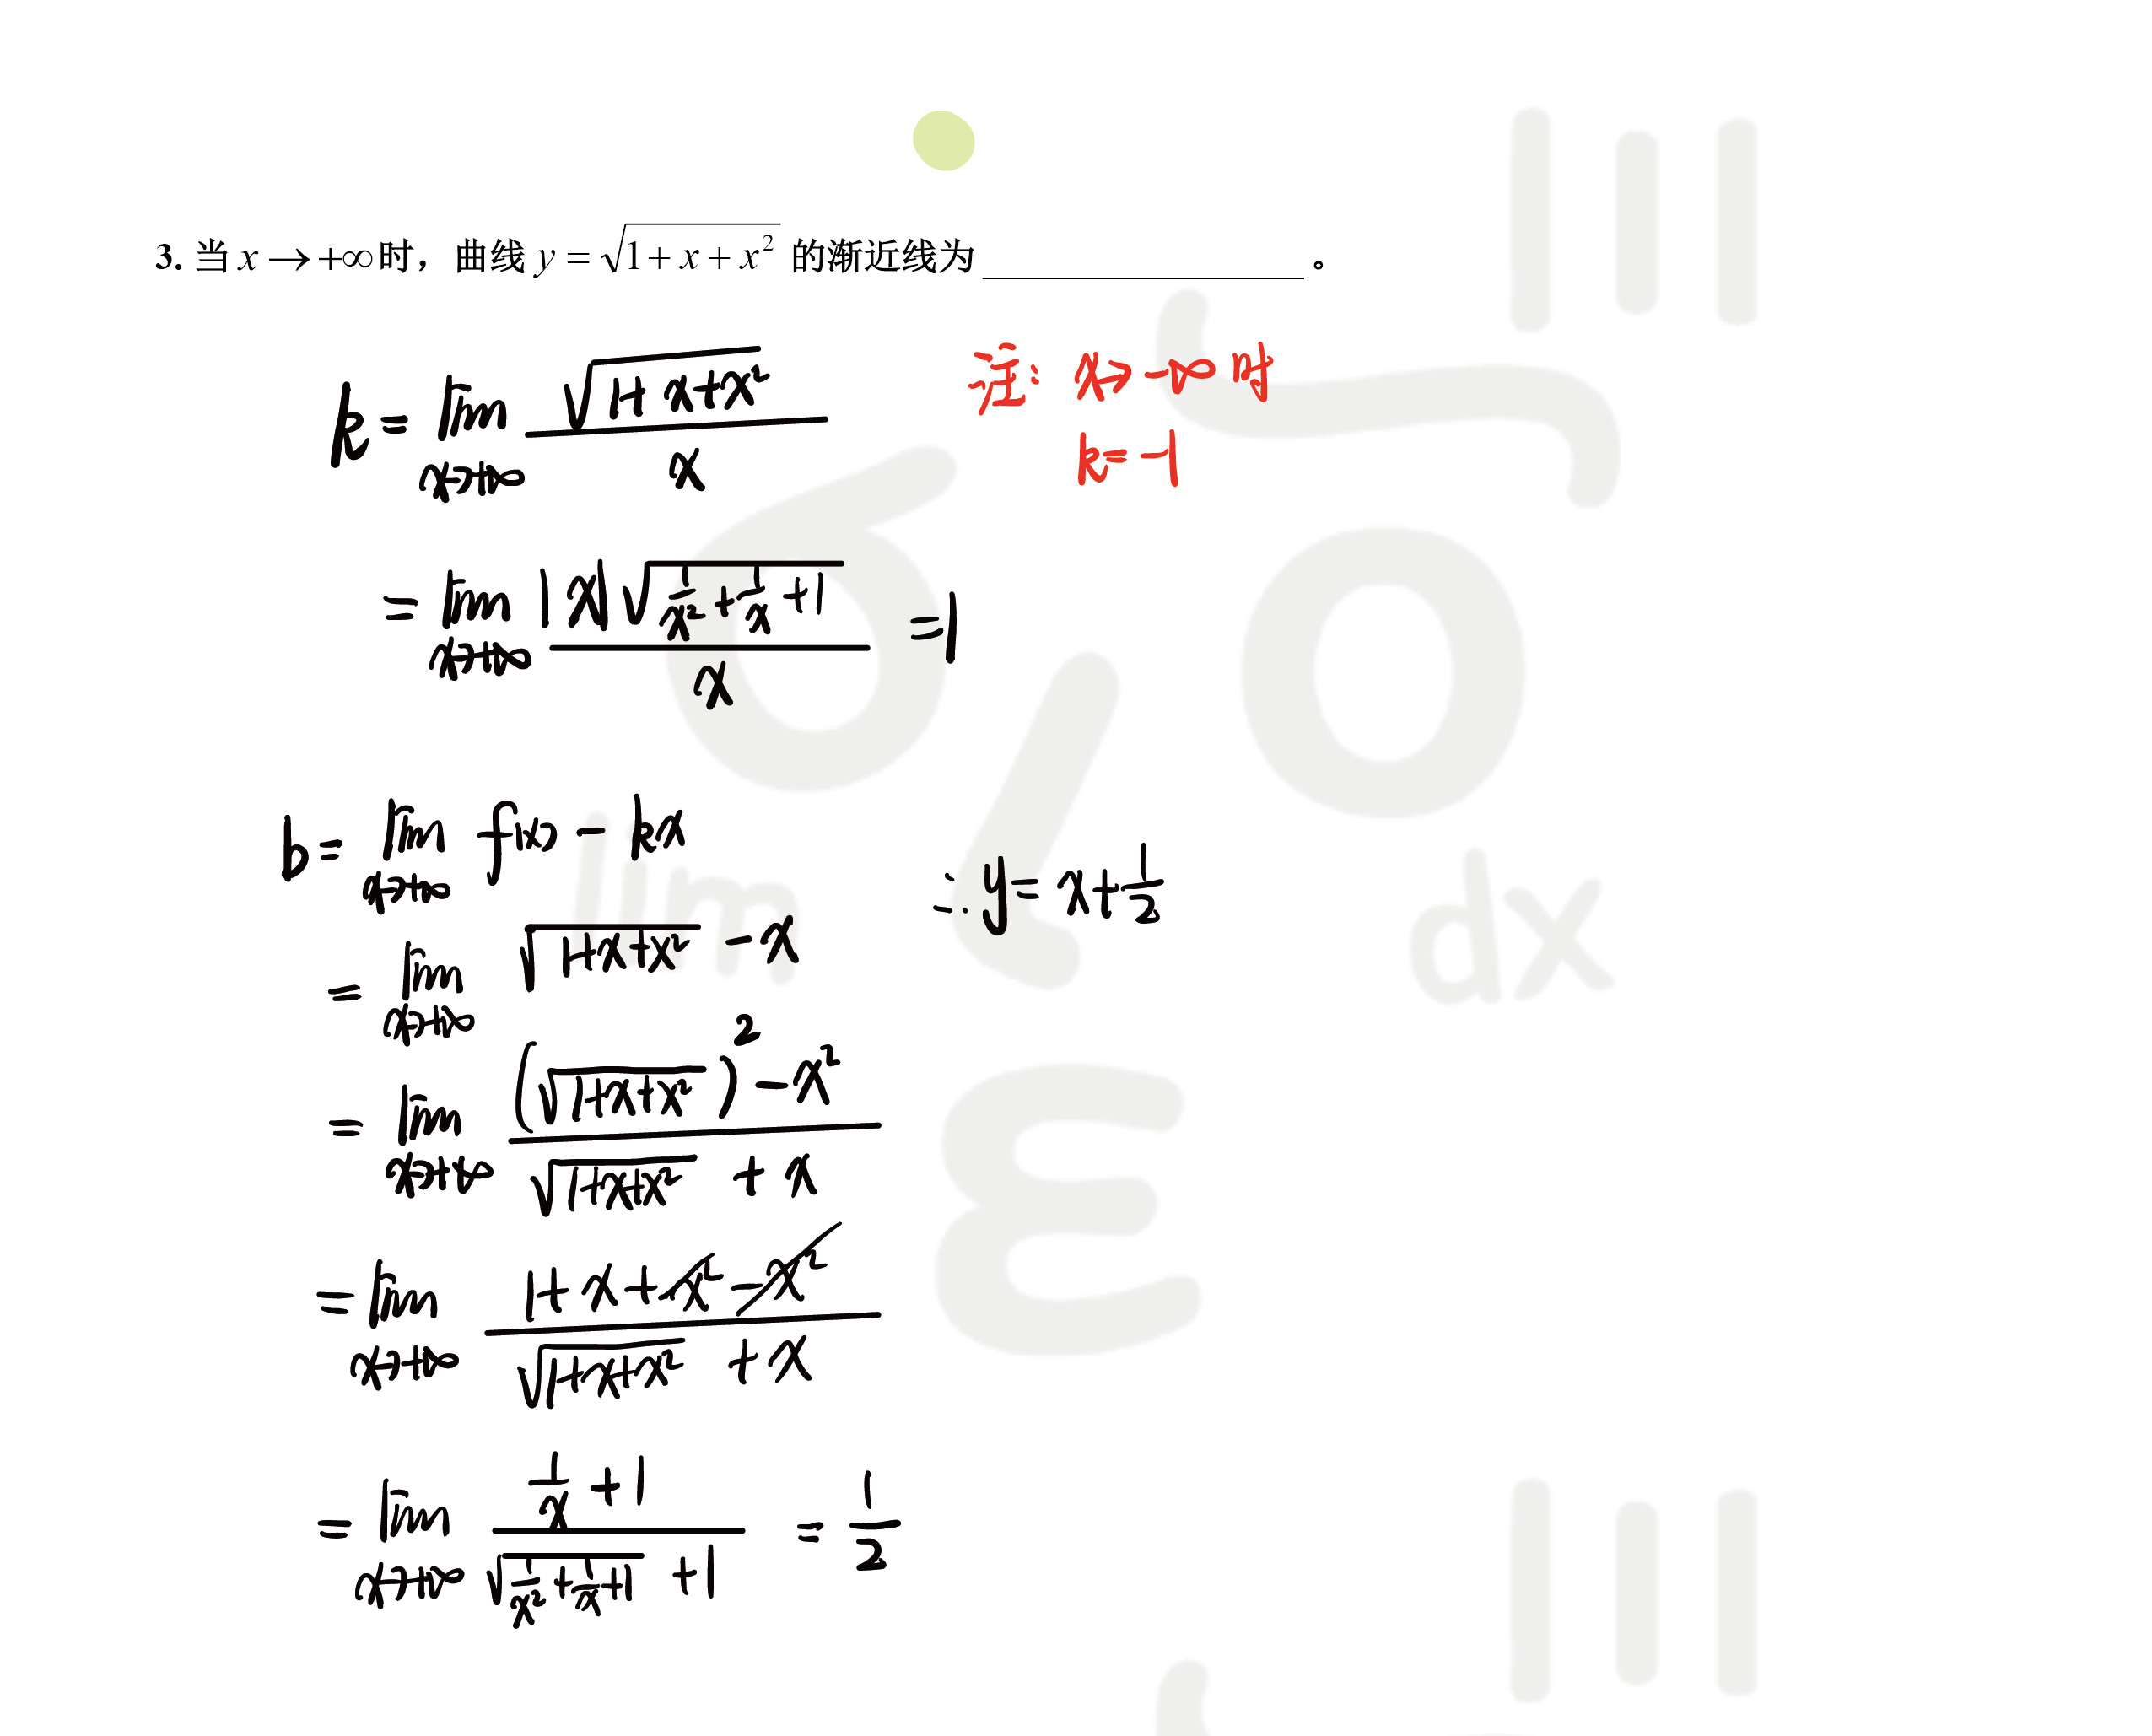 3. 当 x → +∞ 时，曲线 y = √(1 + x + x²) 的渐近线为 ____________ 。
k = lim_{x→+∞} √(1+x+x²) / x
= lim_{x→+∞} |x| √(1/x² + 1/x + 1) / x = 1
注: x→ -∞ 时
k = -1
b = lim_{x→+∞} f(x) - kx
= lim_{x→+∞} √(1+x+x²) - x
= lim_{x→+∞} ((√(1+x+x²))² - x²) / (√(1+x+x²) + x)
= lim_{x→+∞} (1 + x + x² - x²) / (√(1+x+x²) + x)
= lim_{x→+∞} (1/x + 1) / (√(1/x² + 1/x + 1) + 1) = 1/2
∴ y = x + 1/2
lim
dx